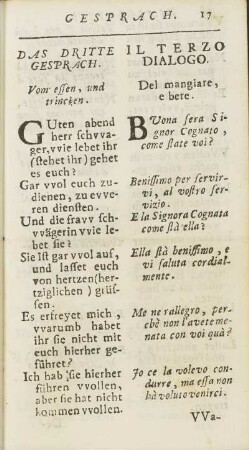 GESPRACH. 17
DAS DRITTE
GESPRACH.
Vom essen, und
trincken.
GUten abend
herr schvva-
ger, vvie lebet ihr
(stehet ihr) gehet
es euch?
Gar vvol euch zu-
dienen, zu evve-
ren diensten.
Und die fravv sch-
vvägerin vvie le-
bet sie?
Sie Ist gar vvol auf,
und lasset euch
von hertzen(her-
tziglichen ) grüs-
sen.
Es erfreyet mich ,
vvarumb habet
ihr sie nicht mit
euch hierher ge-
führet?
Ich hab sie hierher
führen vvollen,
aber sie hat nicht
kommen vvollen.
IL TERZO
DIALOGO.
Del mangiare,
e bere.
BUona sera Si
gnor Cognato ,
come state voi?
Benissimo per servir-
vi, al vostro ser-
vizio.
E la Signora Cognata
come stà ella?
Ella stà benissimo, e
vi saluta cordial-
mente.
Me ne rallegro, per-
chè non l'avete me-
nata con voi quà?
Jo ce la volevo con-
durre, ma essa non
hà voluto venirci.
VVa-